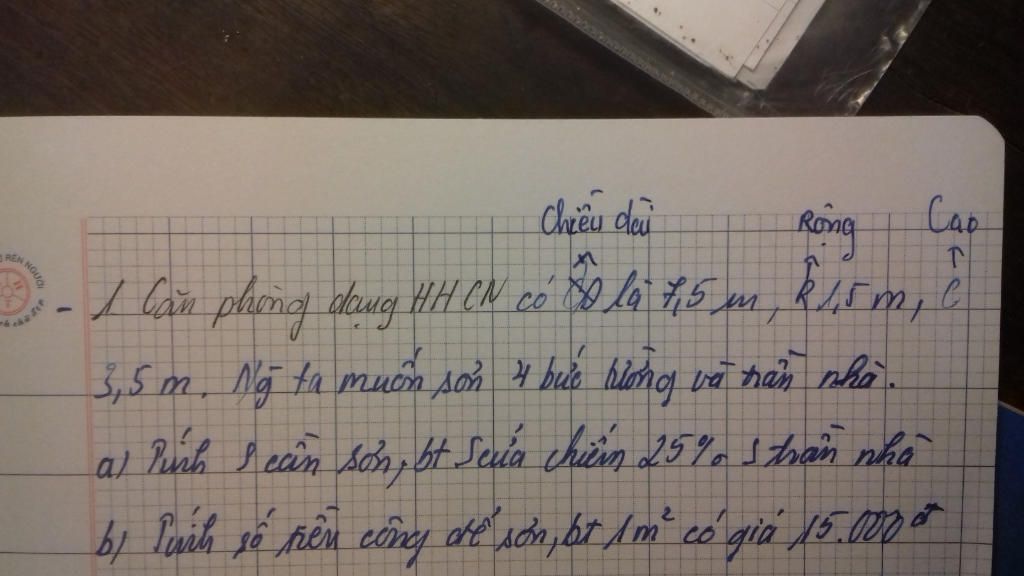 Chiều dài Rộng Cao
- 1 Căn phòng dạng HHCN có CD là 7,5 m, R 1,5 m, C
3,5 m. Ng ta muốn sơn 4 bức tường và trần nhà.
a) Tính S cần sơn, bt S cửa chiếm 25% S trần nhà
b) Tính số tiền công để sơn, bt 1m² có giá 15.000đ
RÈN NGƯỜI